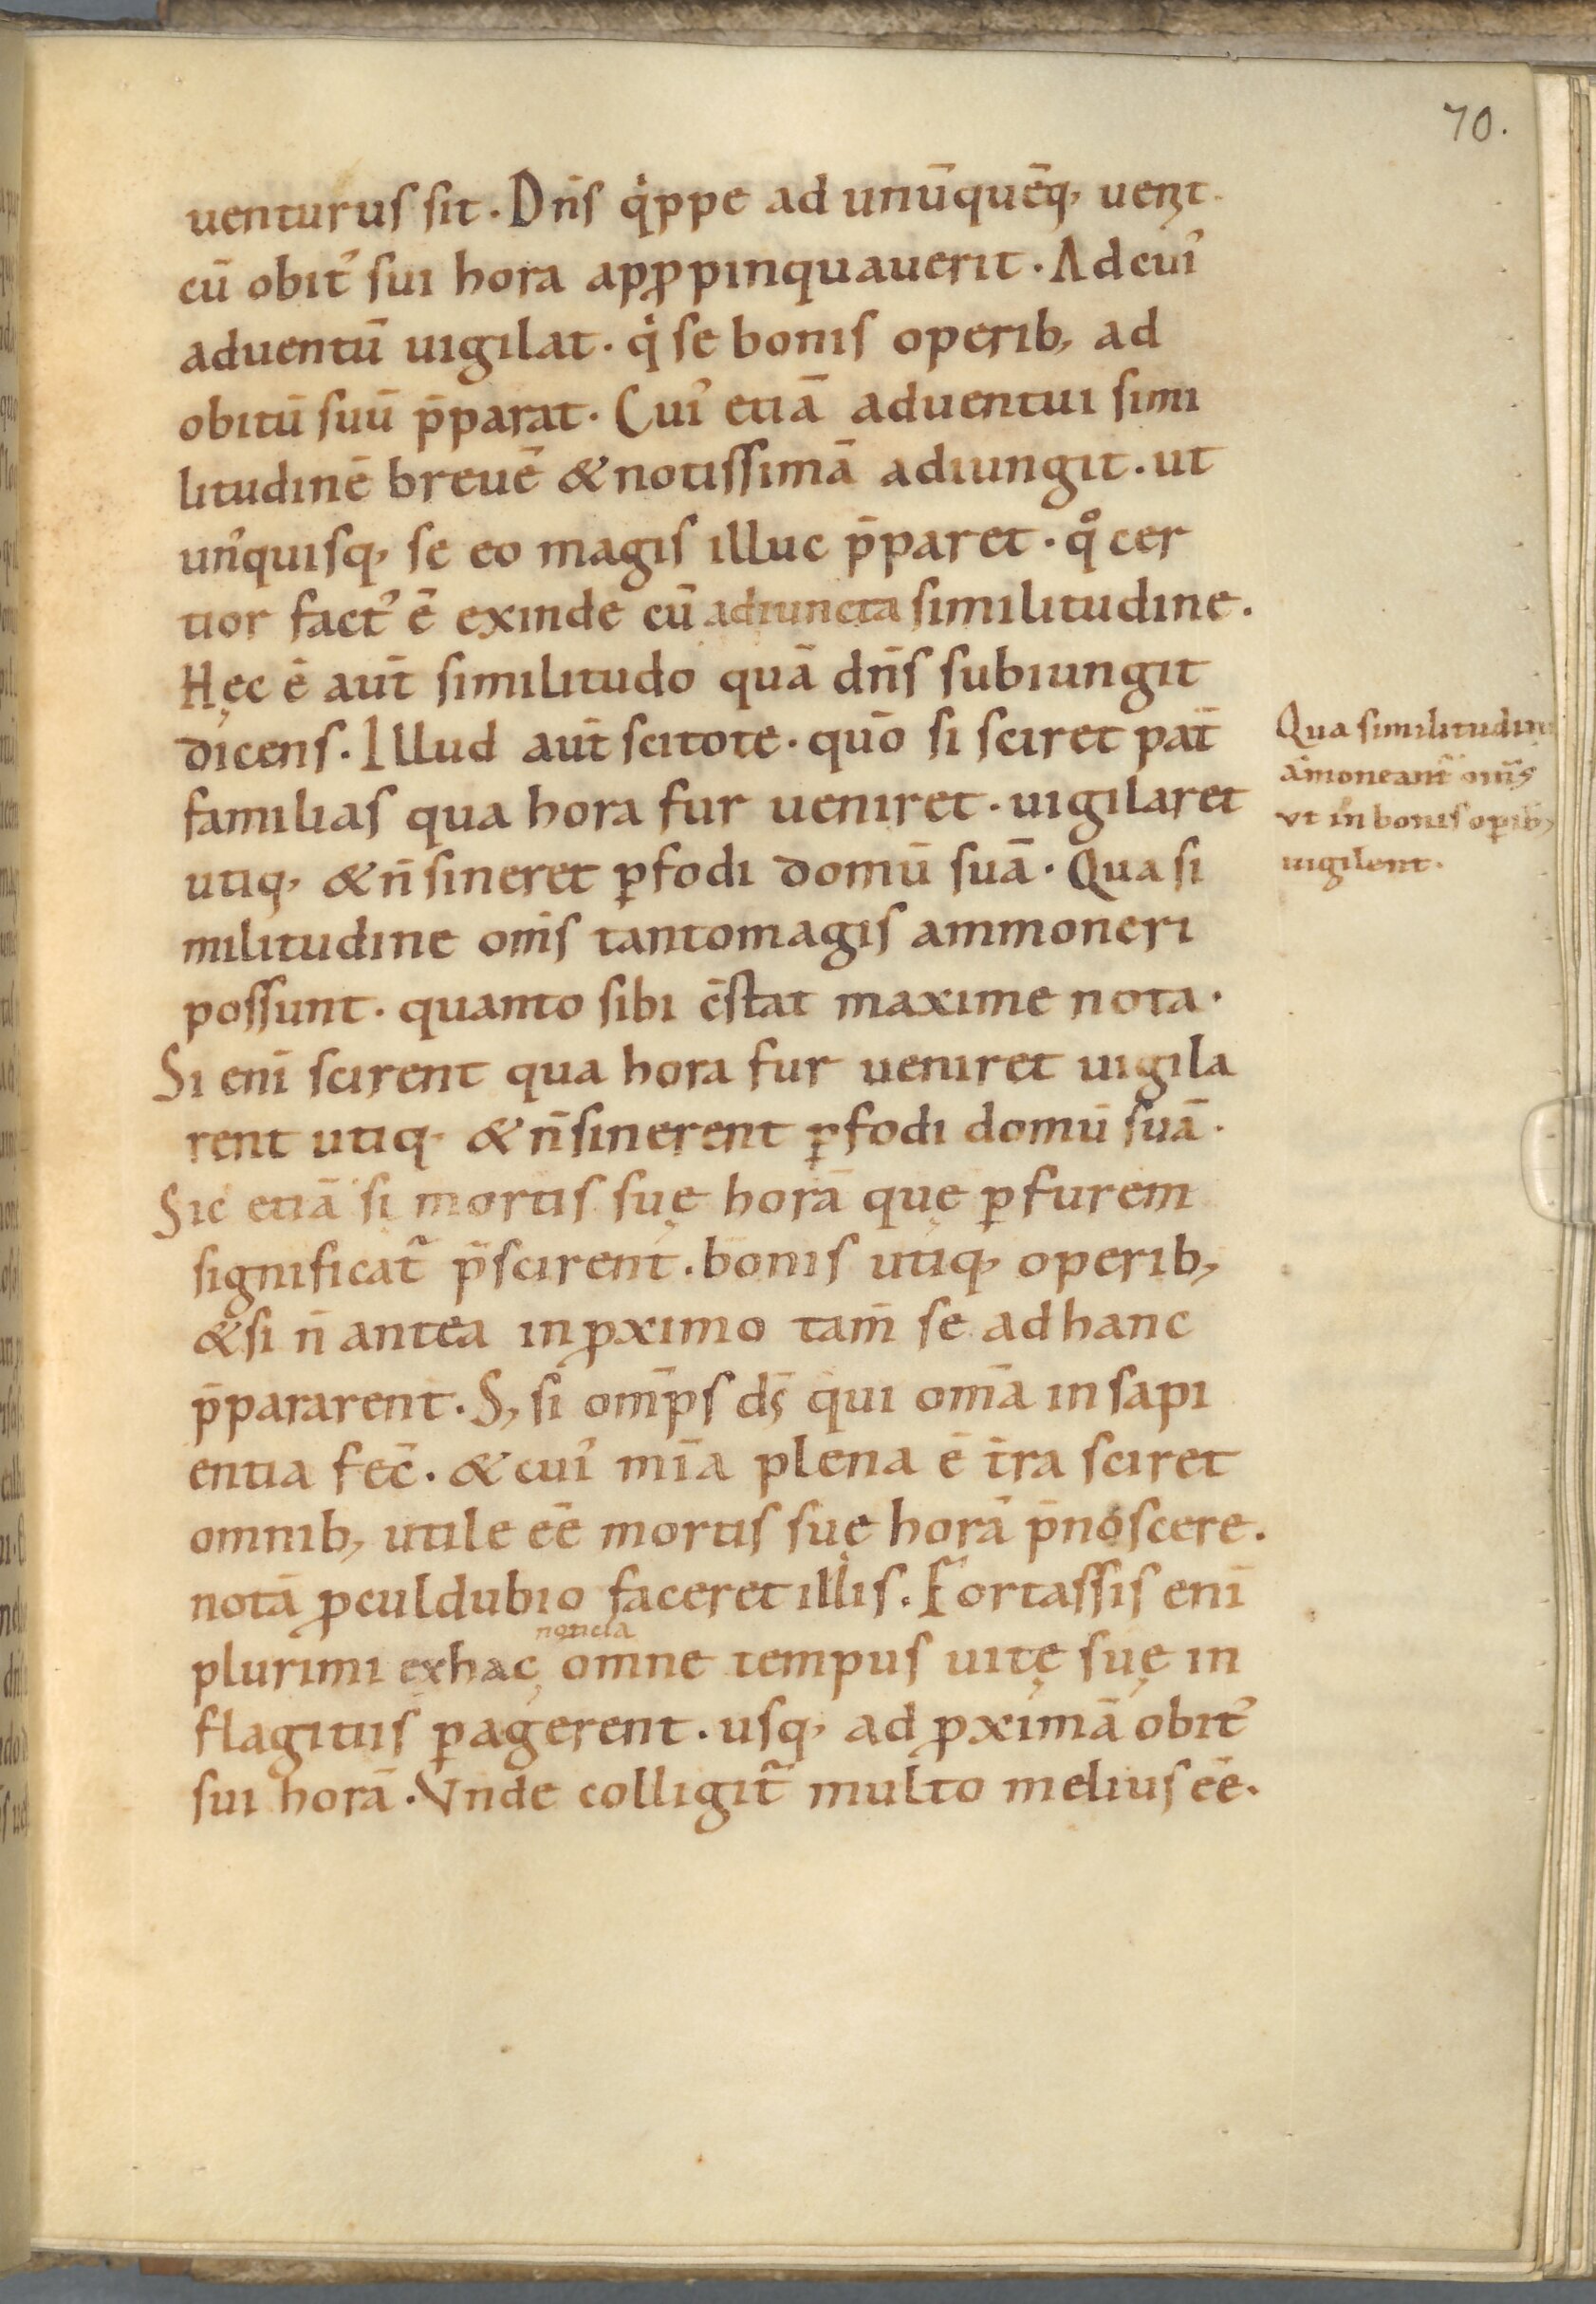 70.
uenturus sit. Dn̄s qͥppe ad unūquēq, uenıt.
cū obit᾽ sui hora apꝓpinquauerit. Ad cui᾽
aduentū uigilat. qͥ se bonis operib, ad
obitū suū p̄parat. Cui᾽ etiā aduentui simi
litudinē breuē & notissimā adiungit. ut
un᾽quisq, se eo magis illuc p̄paret. qͦ cer
tior fact᾽ ē exinde cū adiuncta similitudine.
Hęc ē aut̄ similitudo quā dn̄s subiungit
dicens. Illud aut̄ scitote. quō si sciret pat̄
familias qua hora fur ueniret. uigilaret
utiq, & n̄ sineret ꝑfodi domū suā. Qua si
militudine om̄s tantomagis ammoneri
possunt. quanto sibi c̄stat maxime nota.
Si eni̅ scirent qua hora fur ueniret uigila
rent utiq, & n̄ sinerent ꝑfodi domū suā.
Sic etiā si mortis suę horā quę ꝑ furem
significat᷑ p̄scirent. bonis utiq, operib,
& si n̄ antea in ꝓximo tam̄ se ad hanc
p̄pararent. S, si om̅ps ds̄ qui om̄a in sapi
entia fec̄. & cui᾽ mi̅a plena ē t̄ra sciret
omnib, utile eē mortis suę horā p̄noscere.
notā ꝓculdubio faceret illis. Fortassis eni̅
noticia
plurimi ex hac, omne tempus uitę suę in
flagitiis ꝑagerent. usq, ad ꝓximā obit᾽
sui horā. Vnde colligit᷑ multo melius eē.
Qua similitudin
ām̄oneant᷑ om̄s
vt in bonis oꝑib,
uigilent.